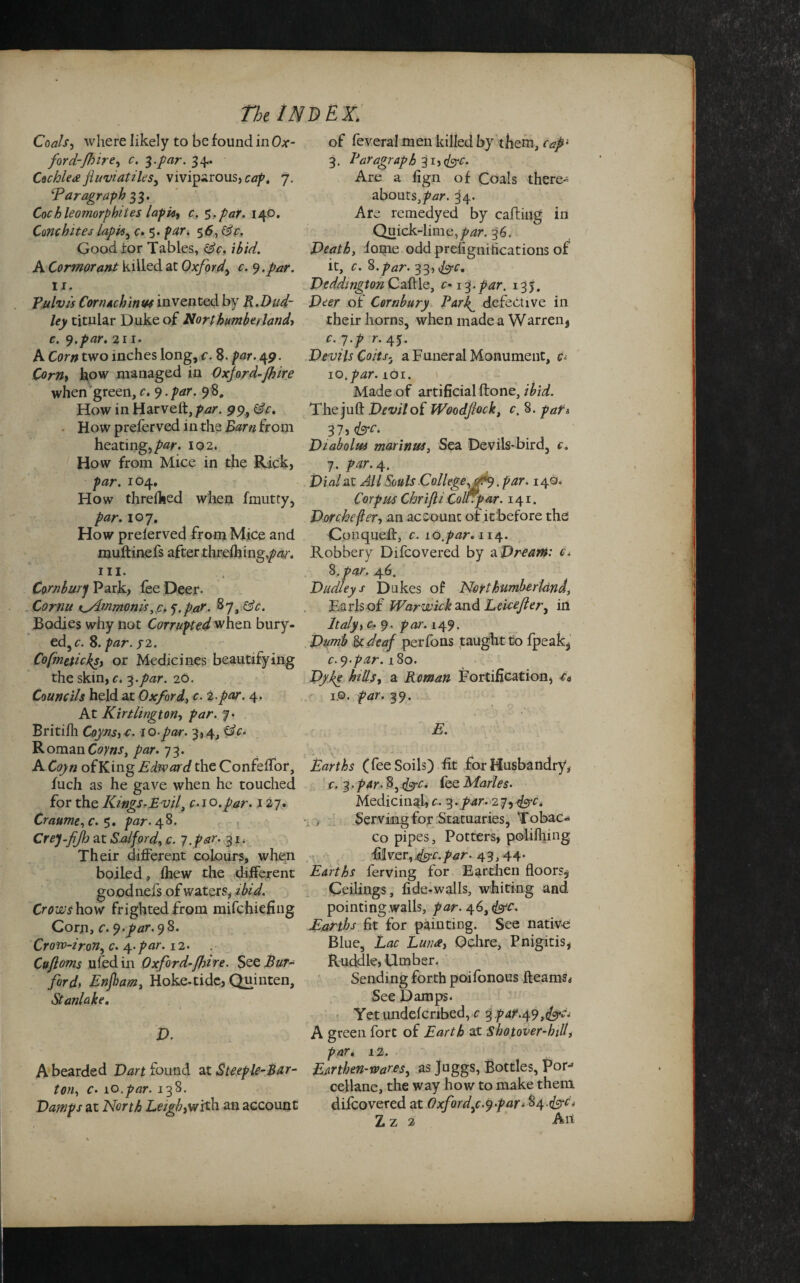 The INDEX.
Coals, where likely to be found in Ox-
ford-ſhire, c. 3.par. 34.
Cochleæ fluviatiles, viviparous, cap. 7.
Paragraph 33.
Cochleomorphites lapis, c. 5.par. 140.
Conchites lapis, c. 5. par. 56, &c.
Good for Tables, &c. ibid.
A Cormorant killed at Oxford, c. 9.par.
11.
Pulvis Cornachinus invented by R.Dud-
ley titular Duke of Northumberland,
c. 9.par. 211.
A Corn two inches long, c. 8. par. 49.
Corn, how managed in Oxford-ſhire
when green, c. 9.par. 98.
How in Harveſt, par. 99, &c.
How preſerved in the Barn from
heating, par. 102.
How from Mice in the Rick,
par. 104.
How threſhed when ſmutty,
par. 107.
How preſerved from Mice and
muſtineſs after threſhing, par.
111.
Cornbury Park, ſee Deer.
Cornu Ammonis, c. 5.par. 87, &c.
Bodies why not Corrupted when bury-
ed, c. 8. par. 52.
Coſmeticks, or Medicines beautifying
the skin, c. 3.par. 20.
Councils held at Oxford, c. 2.par. 4.
At Kirtlington, par. 7.
Britiſh Coyns, c. 10.par. 3, 4, &c.
Roman Coyns, par. 73.
A Coyn of King Edward the Confeſſor,
ſuch as he gave when he touched
for the Kings-Evil, c.10.par. 127.
Craume, c. 5. par. 48.
Crey-fiſh at Salford, c. 7.par. 31.
Their different colours, when
boiled, ſhew the different
goodneſs of waters, ibid.
Crows how frighted from miſchiefing
Corn, c. 9.par. 98.
Crow-iron, c. 4.par. 12.
Cuſtoms uſed in Oxford-ſhire. See Bur-
ford, Enſham, Hoke-tide, Quinten,
Stanlake.
D.
A bearded Dart found at Steeple-Bar-
ton, c. 10.par. 138.
Damps at North Leigh, with an account
of ſeveral men killed by them, cap.
3. Paragraph 31, &c.
Are a ſign of Coals there-
abouts, par. 34.
Are remedyed by caſting in
Quick-lime, par. 36.
Death, ſome odd preſignifications of
it, c. 8.par. 33, &c.
Deddington Caſtle, c. 13.par. 135.
Deer of Cornbury Park defective in
their horns, when made a Warren,
c. 7.p r. 45.
Devils Coits, a Funeral Monument, c.
10.par. 101.
Made of artificial ſtone, ibid.
The juſt Devil of Woodſtock, c. 8. par.
37, &c.
Diabolus marinus, Sea Devils-bird, c.
7. par. 4.
Dial at All Souls College, c. 9. par. 140.
Corpus Chriſti Coll. par. 141.
Dorcheſter, an account of it before the
Conqueſt, c. 10.par. 114.
Robbery Diſcovered by a Dream: c.
8.par. 46.
Dudleys Dukes of Northumberland,
Earls of Warwick and Leiceſter, in
Italy, c. 9. par. 149.
Dumb & deaf perſons taught to ſpeak,
c.9.par. 180.
Dyke hills, a Roman Fortification, c.
10. par. 39.
E.
Earths (ſee Soils) fit for Husbandry,
c. 3.par. 8, &c. ſee Marles.
Medicinal, c. 3.par. 27, &c.
Serving for Statuaries, Tobac-
co pipes, Potters, poliſhing
ſilver, &c.par. 43, 44.
Earths ſerving for Earthen floors,
Ceilings, ſide-walls, whiting and
pointing walls, par. 46, &c.
Earths fit for painting. See native
Blue, Lac Lunæ, Ochre, Pnigitis,
Ruddle, Umber.
Sending forth poiſonous ſteams,
See Damps.
Yet undeſcribed, c 3 par.49, &c.
A green ſort of Earth at Shotover-hill,
par. 12.
Earthen-wares, as Juggs, Bottles, Por-
cellane, the way how to make them
diſcovered at Oxford, c.9.par. 84.&c.
Zz 2
An